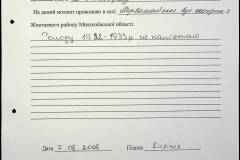 На даний момент проживаю в селі Первомайське вул.
Жовтневого району Миколаївської області.
Голоду 1932-1933р не пам'ятаю
Дата 7.08.2008 Підпис